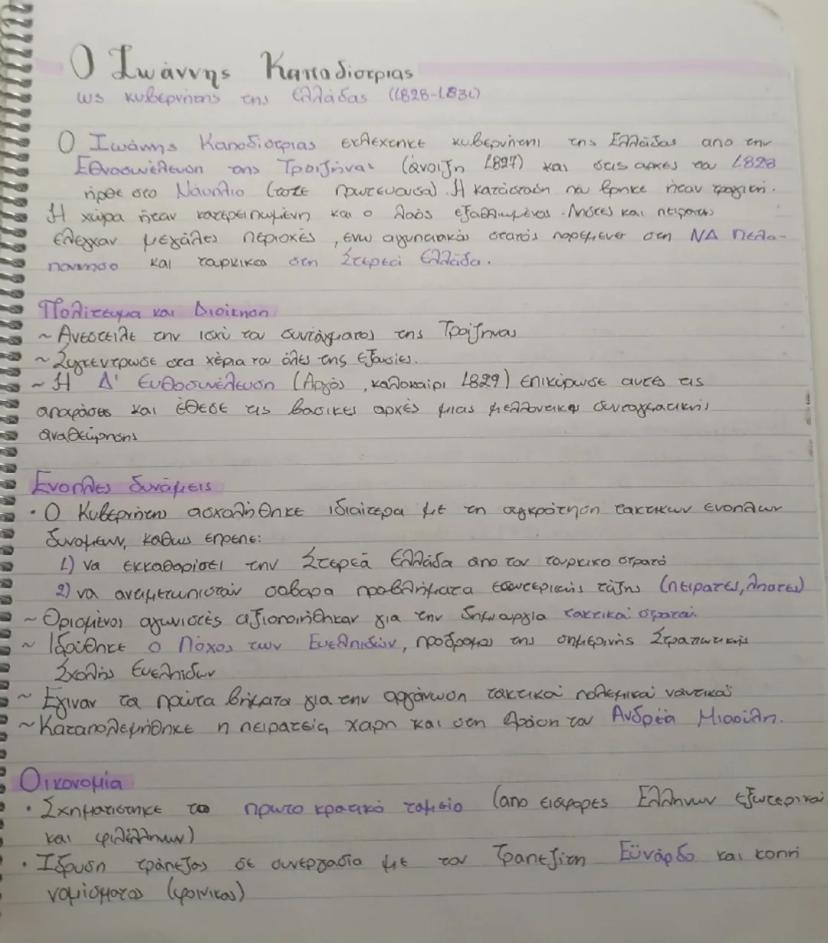 Ο Ιωάννης Καποδίστριας
ως κυβερνήτης της Ελλάδας (1828-1831)
Ο Ιωάννης Καποδίστριας εκλέχτηκε κυβερνήτη της Ελλάδας απο την
Εθνοσυνέλευση της Τροιζήνας (άνοιξη 1827) και στις αρχές του 1828
ήρθε στο Ναύπλιο (τότε πρωτεύουσα). Η κατάσταση που βρήκε ήταν τραγική.
Η χώρα ήταν κατερειπωμένη και ο λαός εξαθλιωμένος. Ληστές και πειρατές
έλεγχαν μεγάλες περιοχές, ενω αιγυπτιακός στρατός παρέμενε στη ΝΔ Πελο-
πόννησο και τουρκικός στη Στερεά Ελλάδα.
Πολίτευμα και Διοίκηση
~ Ανέστειλε την ισχύ του συντάγματος της Τροιζήνας
~ Συγκέντρωσε στα χέρια του όλες της εξουσίες.
~ Η Δ' Εθνοσυνέλευση (Άργος, καλοκαίρι 1829) επικύρωσε αυτές τις
αποφάσεις και έθεσε τις βασικές αρχές μιας μελλοντικής συνταγματικής
αναθεώρησης
Ένοπλες δυνάμεις
· Ο Κυβερνήτης ασχολήθηκε ιδιαίτερα με τη συγκρότηση τακτικων ενοπλων
δυνάμεων, καθως επρεπε:
1) να εκκαθαρίσει την Στερεά Ελλάδα απο τον τουρκικο στρατό
2) να αντιμετωπιστούν σοβαρα προβλήματα εσωτερικής τάξης (πειρατες, ληστες)
~ Ορισμένοι αγωνιστές αξιοποιήθηκαν για την δημιουργία τακτικού στρατού
~ Ιδρύθηκε ο Λόχος των Ευελπίδων, πρόδρομος της σημερινής Στρατιωτικής
Σχολής Ευελπίδων
~ Έγιναν τα πρώτα βήματα για την οργάνωση τακτικού πολεμικού ναυτικού
~ Καταπολεμήθηκε η πειρατεία, χαρη και στη δράση του Ανδρέα Μιαούλη.
Οικονομία
· Σχηματίστηκε το πρωτο κρατικό ταμείο (απο εισφορες Ελλήνων εξωτερικού
και φιλέλληνων)
· Ίδρυση τράπεζας σε συνεργασία με τον Τραπεζίτη Εϋνάρδο και κοπή
νομίσματος (φοινικας)